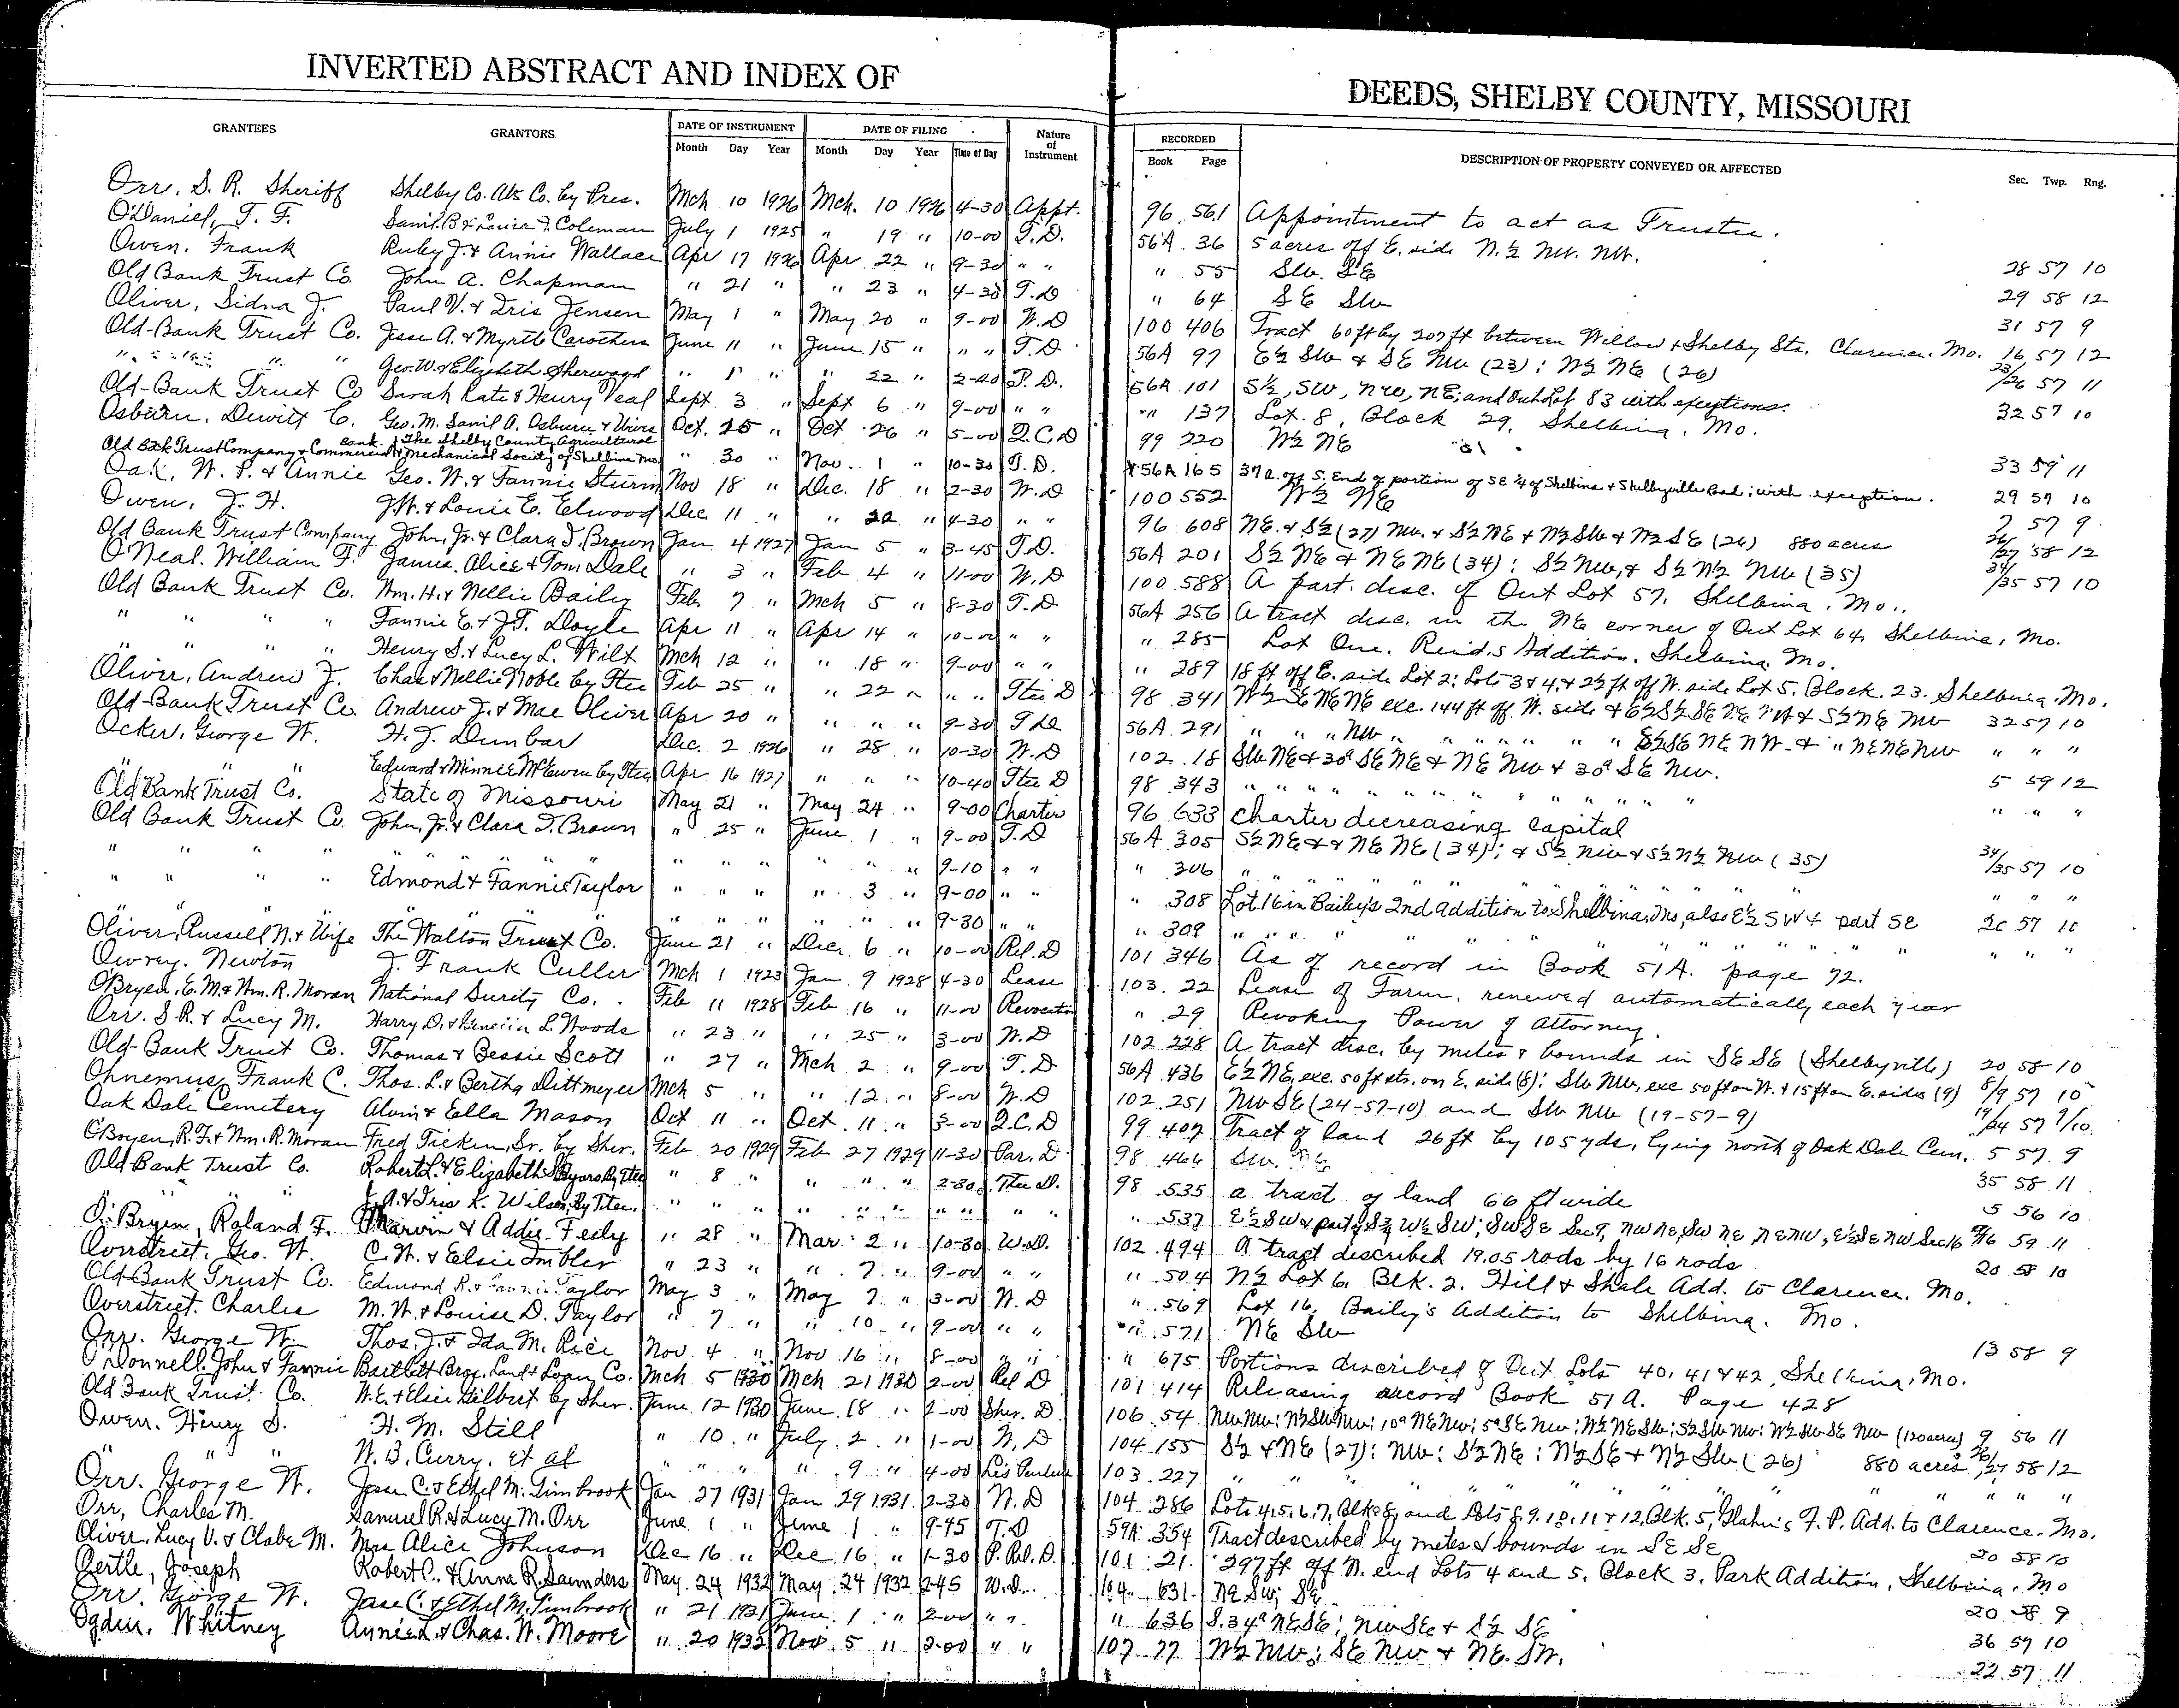 INVERTED ABSTRACT AND INDEX OF DEEDS, SHELBY COUNTY, MISSOURI
GRANTEES GRANTORS DATE OF INSTRUMENT DATE OF FILING Nature of Instrument RECORDED DESCRIPTION OF PROPERTY CONVEYED OR AFFECTED
Month Day Year Month Day Year Time of Day Book Page Sec. Twp. Rng.
Orr, S. R. Sheriff Shelby Co. Abs Co. by Pres. Mch 10 1926 Mch. 10 1926 4-30 Appt. 96 561 Appointment to act as Trustee.
O'Daniel, T. F. Saml. B. & Coleman July 1 1925 " 19 " 10-00 T.D. 56A 36 5 acres off E. side N.½ NW. NW. 28 57 10
Owen, Frank Ruby J. & Annie Wallace Apr 17 1926 Apr. 22 " 9-30 " " " 55 SW. SE 29 58 12
Old Bank Trust Co. John A. Chapman " 21 " " 23 " 4-30 T.D " 64 SE SW 31 57 9
Oliver, Sidna J. Paul V. & Iris Jensen May 1 " May 20 " 9-00 W.D 100 406 Tract 60 ft by 207 ft between Willow & Shelby Sts. Clarence. Mo. 16 57 12
Old-Bank Trust Co. Jesse A. & Myrtle Carothers June 11 " June 15 " " " T.D 56A 97 E½ SW & SE NW (23); W½ NE (26) 23/26 57 11
" " " " Geo. W. & Elizabeth Sherwood " " " 22 " 2-40 T.D. 56A 101 S½, SW, NW, NE; and Out Lot 83 with exceptions. 32 57 10
Old-Bank Trust Co Sarah Kate & Henry Veal Sept 3 " Sept 6 " 9-00 " " " 137 Lot. 8, Block 29, Shelbina, Mo.
Osburn, Dewitt E. Geo. M. Saml A. Osburn & Wives Oct. 25 " Oct 26 " 5-00 Q.C.D 99 220 W½ NE 33 59 11
Old Bank Trust Company & Commercial Bank. The Shelby County Agricultural & Mechanical Society of Shelbina Mo. " 30 " Nov. 1 " 10-30 T.D. 56A 165 37 a. off S. End of portion of SE ¼ of Shelbina & Shelbyville Road; with exception. 29 57 10
Oak, W. P. & Annie Geo. W. & Fannie Sturm Nov 18 " Dec. 18 " 2-30 W.D 100 552 W½ NE 7 57 9
Owen, J. H. J.W. & Louie E. Elwood Dec 11 " " 22 " 4-30 " " 96 608 NE. & S½ (27) NW. & S½ NE & N½ SW & N½ SE (26) 880 acres 26/27 58 12
Old Bank Trust Company John, Jr. & Clara T. Brown Jan 4 1927 Jan 5 " 3-45 T.D. 56A 201 S½ NE & NE NE (34); S½ NW, & S½ N½ NW (35) 34/35 57 10
O'Neal, William F. James, Alice & Tom Dale " 3 " Feb 4 " 11-00 W.D 100 588 A part. desc. of Out Lot 57, Shelbina, Mo.
Old Bank Trust Co. Wm. H. & Nellie Bailey Feb. 7 " Mch 5 " 8-30 T.D 56A 256 A tract desc. in the NE corner of Out Lot 64, Shelbina, Mo.
" " " " Fannie E. & J.T. Doyle Apr 11 " Apr 14 " 10-00 " " " 285 Lot One. Reid,s Addition, Shelbina, Mo.
" " " " Henry S. & Lucy L. Wilt Mch 12 " " 18 " 9-00 " " " 289 18 ft off E. side Lot 2; Lots 3 & 4, & 2½ ft off W. side Lot 5, Block. 23. Shelbina, Mo.
Oliver, Andrew J. Chas & Nellie Noble by Ttee Feb 25 " " 22 " " " Ttee D 98 341 W½ SE NE NE exc. 144 ft off W. side & E½ S½ SE NE NW & S½ NE NW 32 57 10
Old-Bank Trust Co. Andrew J. & Mae Oliver Apr 20 " " " " 9-30 T.D 56A 291 " " " NW " " " " " " S½ SE NE NW. & " NE NE NW " " "
Ocker, George W. H. J. Dunbar Dec. 2 1926 " 28 " 10-30 W.D 102 18 SW NE & 30ª SE NE & NE NW & 30ª SE NW. 5 59 12
" " " Edward & Minnie McEwen by Ttee Apr. 16 1927 " " " 10-40 Ttee D 98 343 " " " " " " " " " " " " "
Old Bank Trust Co. State of Missouri May 21 " May 24 " 9-00 Charter 96 633 Charter decreasing Capital
Old Bank Trust Co. John, Jr. & Clara T. Brown " 25 " June 1 " 9-00 T.D 56A 305 S½ NE & & NE NE (34); & S½ NW & S½ N½ NW (35) 34/35 57 10
" " " " " " " " " " " " " " 9-10 " " " 306 " " " " " " " " " " "
" " " " Edmond & Fannie Taylor " " " " 3 " 9-00 " " " 308 Lot 16 in Bailey's 2nd Addition to Shelbina, Mo, also E½ SW & part SE 20 57 10
" " " " " " " " " " 9-30 " " " 309 " " " " " " " " " " "
Oliver, Russell N. & Wife The Walton Trust Co. June 21 " Dec. 6 " 10-00 Rel. D 101 346 As of record in Book 51A. page 72.
Owrey, Newton J. Frank Culler Mch 1 1923 Jan. 9 1928 4-30 Lease 103 22 Lease of Farm. renewed automatically each year
O'Bryen, E. M. & Wm. R. Moran National Surity Co. Feb 11 1928 Feb 16 " 11-00 Revocation " 29 Revoking Power of Attorney.
Orr. S. R. & Lucy M. Harry D. & L. Woods " 23 " " 25 " 3-00 W.D 102 228 A tract desc. by metes & bounds in SE SE (Shelbyville) 20 58 10
Old-Bank Trust Co. Thomas & Bessie Scott " 27 " Mch 2 " 9-00 T.D 56A 436 E½ NE, exc. 50 ft str. on E. side (8); SW NW, exc 50 ft on W. & 15 ft on E. sides (9) 8/9 57 10
Ohnemus, Frank C. Thos. L. & Bertha Dittmeyer Mch 5 " " 12 " 8-00 W.D 102 251 NW SE (24-57-10) and SW NW (19-57-9) 19/24 57 9/10
Oak Dale Cemetery Alvin & Ella Mason Oct 11 " Oct. 11 " 3-00 Q.C.D 99 407 Tract of land 26 ft by 105 yds, lying north of Oak Dale Cem. 5 57 9
O'Bryen, R. F. & Wm. R. Moran Fred Ficken, Sr. by Sher. Feb 20 1929 Feb 27 1929 11-30 Par. D 98 466 SW. 35 58 11
Old Bank Trust Co. Robert L. & Elizabeth Byars By Ttee " 8 " " " " 2-30 Ttee D. 98 535 a tract of land 66 ft wide 5 56 10
" " " A. & Iris K. Wilson, By Ttee. " " " " " " " " " " " 537 E½ SW & part of S½ W½ SW; SW SE Sec 9, NW NE, SW NE, NE NW, E½ SE NW Sec 16 9/16 59 11
O'Bryen, Roland F. Marvin & Addie Feely " 28 " Mar. 2 " 10-30 W.D. 102 494 A tract described 19.05 rods by 16 rods 20 58 10
Overstreet, Geo. W. C. W. & Elsie Imbler " 23 " " 7 " 9-00 " " " 504 N½ Lot 6, Blk. 2. Hill & Shale Add. to Clarence. Mo.
Old-Bank Trust Co. Edmond R. & Fannie Taylor May 3 " May 7 " 3-00 W.D " 569 Lot 16, Baily's Addition to Shelbina, Mo.
Overstreet, Charles M. W. & Louise D. Taylor " 7 " " 10 " 9-00 " " " 571 NE SW 13 58 9
Orr. George W. Thos. J. & Ida M. Rice Nov. 4 " Nov 16 " 8-00 " " " 675 Portions described of Out Lots 40, 41 & 42, Shelbina, Mo.
O'Donnell, John & Fannie Bartlett Bros. Land & Loan Co. Mch 5 1930 Mch 21 1930 2-00 Rel D 101 414 Releasing record Book 51A. Page 428
Old Bank Trust Co. W. E. & Elsie Gilbert by Sher. June 12 1930 June 18 " 1-00 Sher. D 106 54 NW NW; N½ SW NW; 10ª NE NW; 5ª SE NW; N½ NE SW; S½ SW NW; W½ SW SE NW (120 acres) 9 56 11
Owen. Henry S. H. M. Still " 10 " July 2 " 1-00 W.D 104 155 S½ & NE (27); NW; S½ NE; N½ SE & N½ SW (26) 880 acres 26/27 58 12
" " " W. B. Curry, et al " " " " 9 " 4-00 Lis Pendens 103 227 " " " " " " " " "
Orr. George W. Jesse C. & Ethel M. Timbrook Jan 27 1931 Jan 29 1931 2-30 W.D 104 286 Lots 4, 5, 6, 7, Blk 8, and Lots 8, 9, 10, 11 & 12, Blk. 5, Glahn's F. P. Add. to Clarence, Mo.
Orr, Charles M. Samuel R. & Lucy M. Orr June 1 " June 1 " 9-45 T.D 59A 354 Tract described by metes & bounds in SE SE 20 58 10
Oliver, Lucy V. & Clabe M. Mrs Alice Johnson Dec 16 " Dec 16 " 1-30 P. Rel. D. 101 21 297 ft off N. end Lots 4 and 5, Block 3, Park Addition, Shelbina, Mo
Oertle, Joseph Robert C. & Anna R. Saunders May 24 1932 May 24 1932 2-45 W.D. 104 631 NE SW; SE 20 58 9
Orr. George W. Jesse C. & Ethel M. Timbrook " 21 1931 June 1 " 2-00 " " " 636 S. 34ª NE SE; NW SE & S½ SE 36 59 10
Ogden, Whitney Annie L. & Chas. W. Moore " 20 1932 Nov. 5 " 2-00 " " 107 77 N½ NW; SE NW & NE. SW. 22 57 11